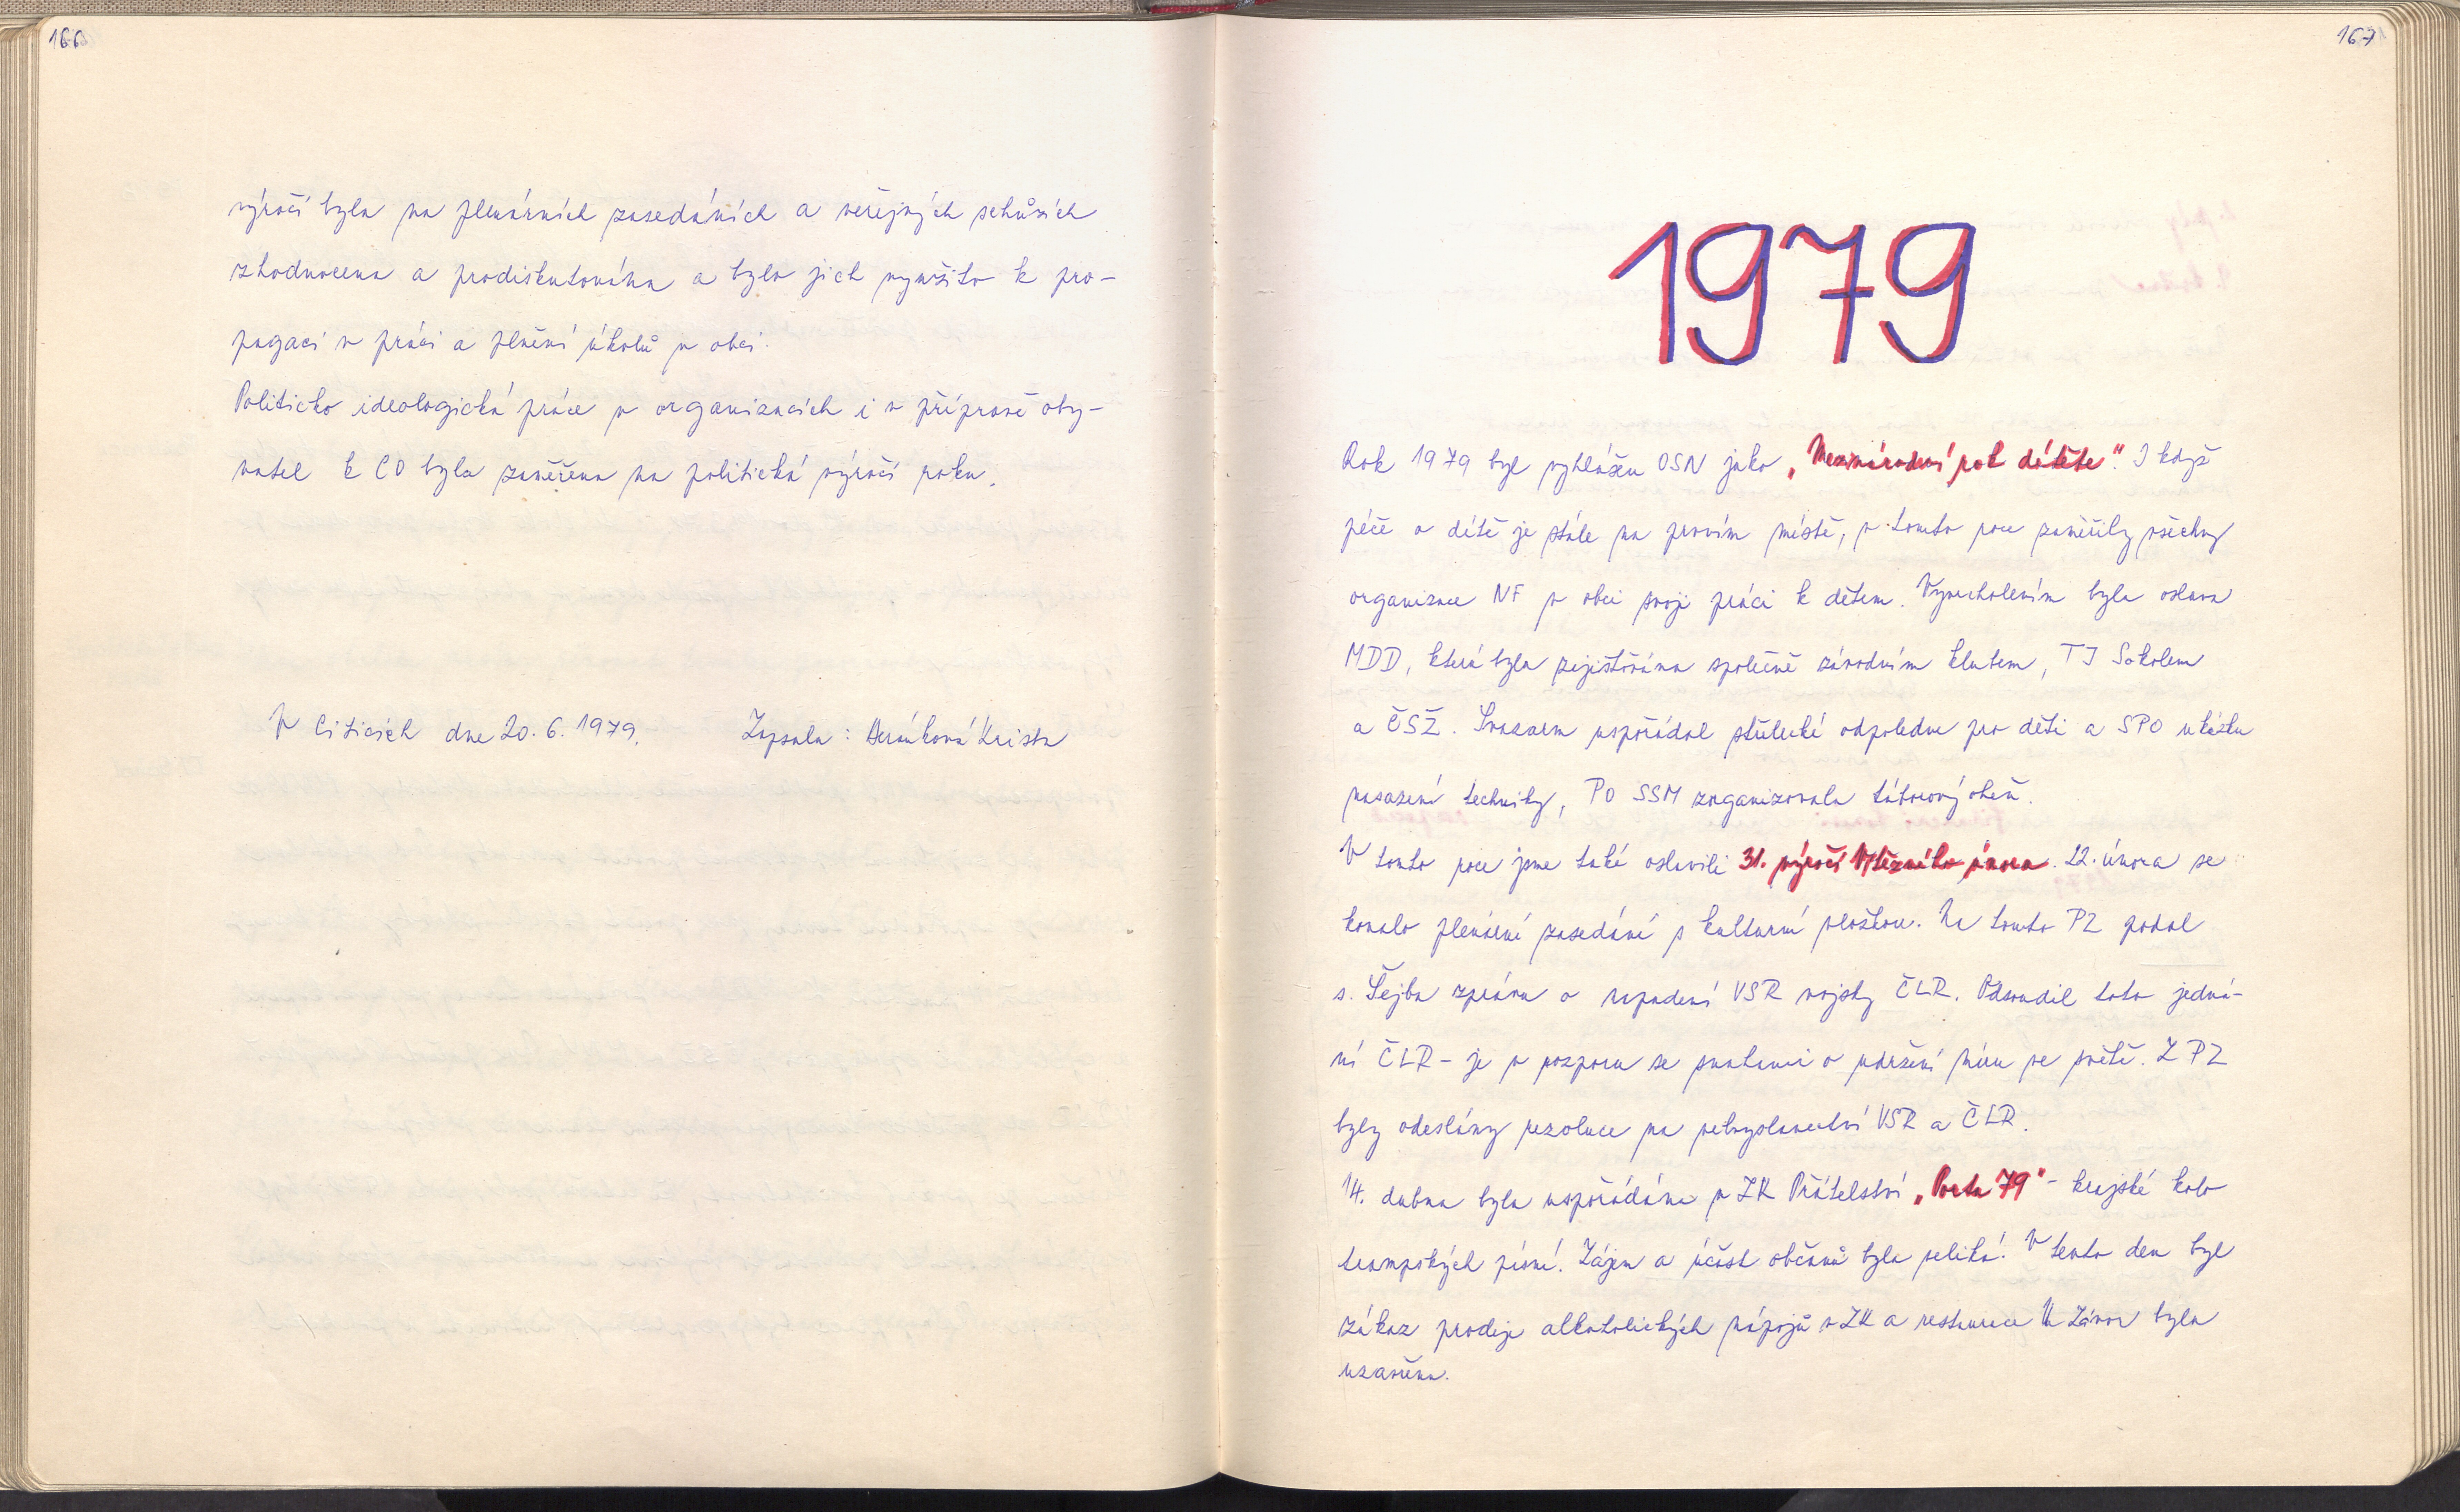 166
výročí byla na plenárních zasedáních a veřejných schůzích
zhodnocena a prodiskutována a bylo jich využito k pro-
pagaci v práci a plnění úkolů v obci.
Politicko ideologická práce v organizacích i v přípravě oby-
vatel k CO byla zaměřena na politická výročí roku.
V Citicích dne 20. 6. 1979. Zapsala: Beránková Krista
167
1979
Rok 1979 byl vyhlášen OSN jako „Mezinárodní rok dítěte". I když
péče o dítě je stále na prvním místě, v tomto roce zaměřily všechny
organizace NF v obci svoji práci k dětem. Vyvrcholením byla oslava
MDD, která byla zajišťována společně závodním klubem, TJ Sokolem
a ČSŽ. Svazarm uspořádal střelecké odpoledne pro děti a SPO ukázku
nasazení techniky, PO SSM zorganizovala táborový oheň.
V tomto roce jsme také oslavili 31. výročí Vítězného února. 22. února se
konalo plenární zasedání s kulturní vložkou. Na tomto PZ podal
s. Šejba zprávu o napadení VSR vojsky ČLR. Odsoudil toto jedná-
ní ČLR - je v rozporu se snahami o udržení míru ve světě. Z PZ
byly odeslány rezoluce na velvyslanectví VSR a ČLR.
14. dubna byla uspořádána v ZK Přátelství „Porta 79" - krajské kolo
trampských písní. Zájem a účast občanů byla veliká. V tento den byl
zákaz prodeje alkoholických nápojů v ZK a restaurace U Závor byla
uzavřena.